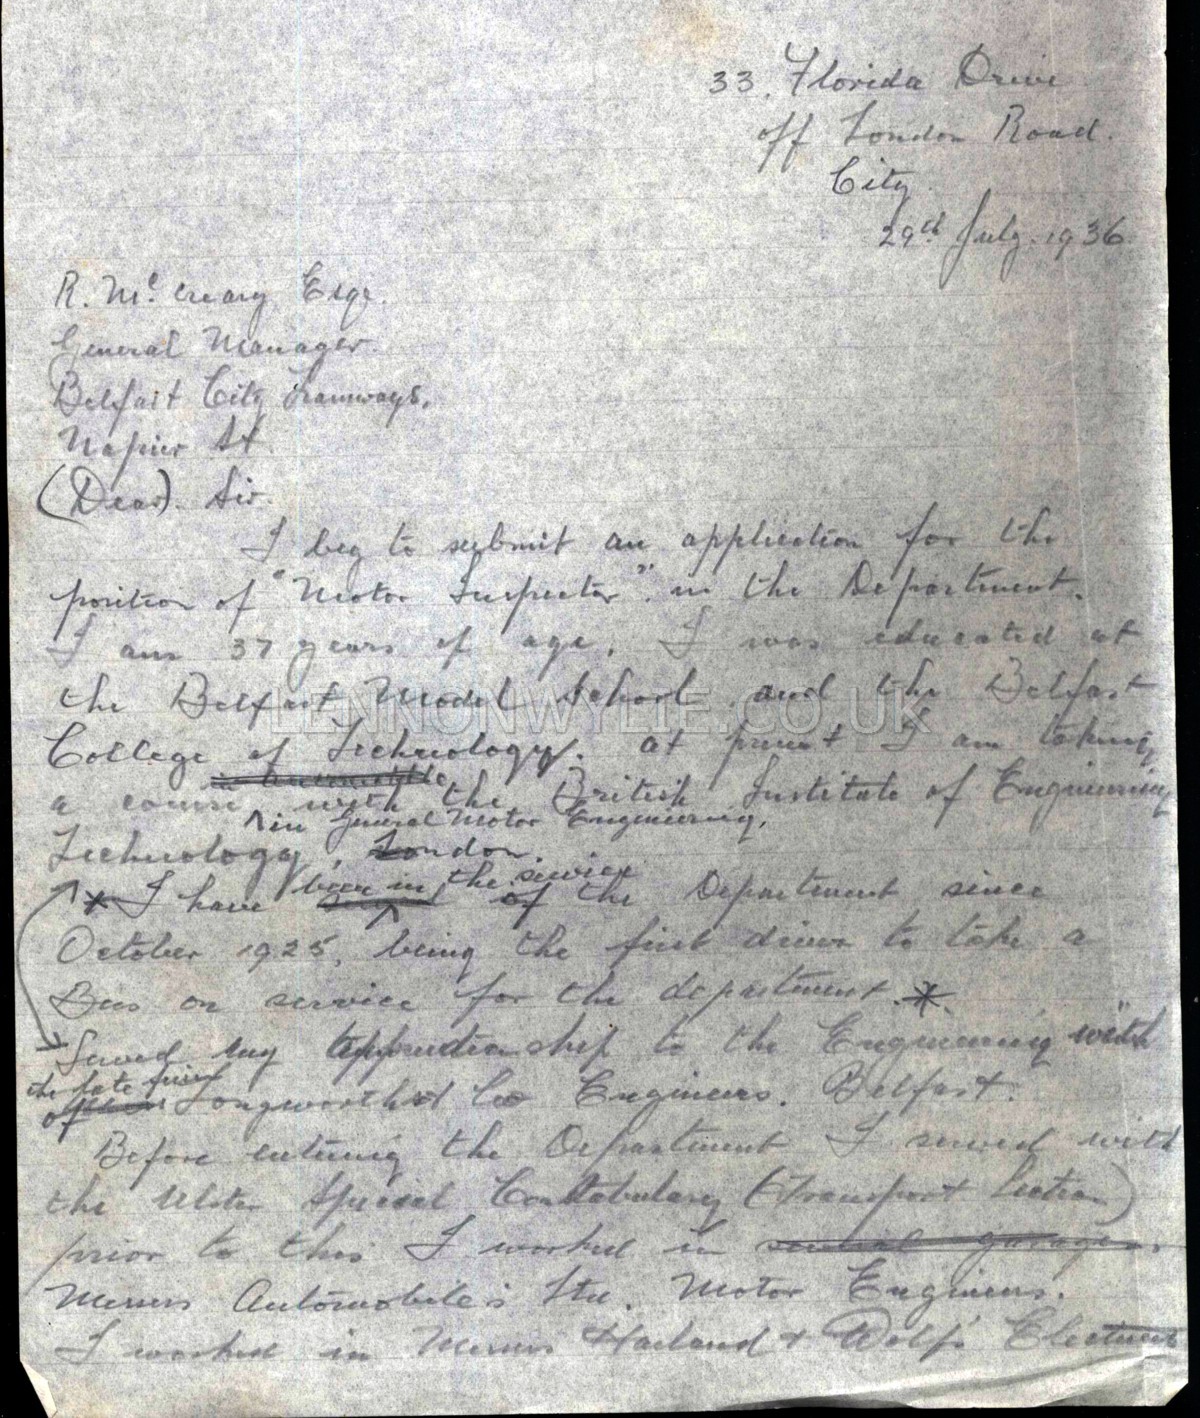 33, Florida Drive
off London Road.
City.
29th July. 1936.
R. Mc Creary Esqr.
General Manager.
Belfast City Tramways,
Napier St.
(Dear). Sir.
I beg to submit an application for the
position of "Motor Inspector". in the Department.
I am 37 years of age. I was educated at
the Belfast Model School, and the Belfast
LENNONWYLIE.CO.UK
College of Technology. at present I am taking
in automobile
a course, with the British Institute of Engineering
in General Motor Engineering,
Technology, London.
been in the service
* I have served of the Department since
October 1925, being the first driver to take a
Bus on service for the department. *
Served my apprenticeship to the Engineering with
the late firm
of Longworth & Co Engineers. Belfast.
Before entering the Department I served with
the Ulster Special Constabulary (Transport Section)
prior to this I worked in several garages.
Messrs Automobile's Ltd. Motor Engineers.
I worked in Messrs Harland & Wolf's